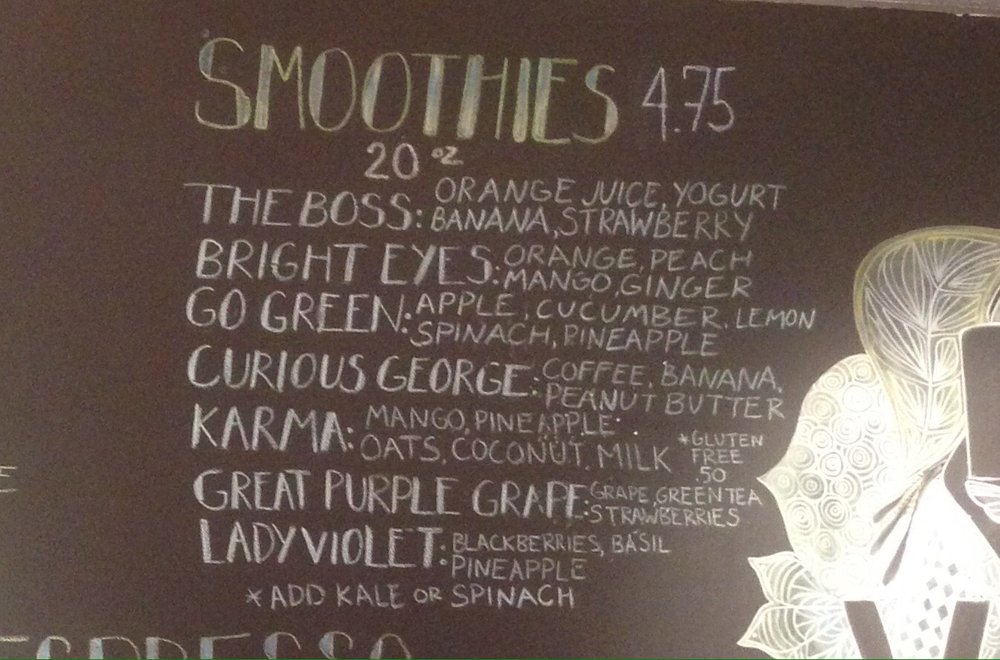 SMOOTHIES 4.75
20 oz
THE BOSS: ORANGE JUICE, YOGURT
BANANA, STRAWBERRY
BRIGHT EYES: ORANGE, PEACH
MANGO, GINGER
GO GREEN: APPLE, CUCUMBER, LEMON
SPINACH, PINEAPPLE
CURIOUS GEORGE: COFFEE, BANANA,
PEANUT BUTTER
KARMA: MANGO, PINEAPPLE
OATS, COCONUT, MILK
*GLUTEN
FREE
.50
GREAT PURPLE GRAPE: GRAPE, GREEN TEA
STRAWBERRIES
LADY VIOLET: BLACKBERRIES, BASIL
PINEAPPLE
* ADD KALE OR SPINACH
ESPRESSO